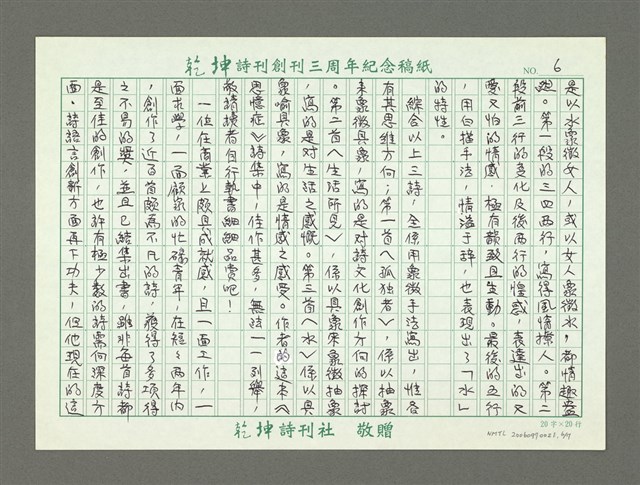 乾坤詩刊創刊三周年紀念稿紙
NO. 6
是以水象徵女人，或以女人象徵水，都情趣盎
然。第一段的三四兩行，寫得風情撩人。第二
段前三行的變化及後兩行的惶惑，表達出的又
愛又怕的情感，極有韻致且生動。最後的五行
，用白描手法，情溢于辭，也表現出了「水」
的特性。
綜合以上三詩，全係用象徵手法寫出，惟各
有其思維方向；第一首〈孤獨者〉，係以抽象
來象徵具象，寫的是对詩文化創作方向的探討
。第二首〈生活所見〉，係以具象來象徵抽象
，寫的是对生活之感慨。第三首〈水〉係以具
象喻具象，寫的是情感之感受。作者的這本《
思憶症》詩集中，佳作甚多，無法一一列舉，
敬請讀者自行執書細細品賞吧！
一位在商業上頗具成就感，且一面工作，一
面求學，一面顧家的忙碌青年，在短短兩年内
，創作了近百首頗為不凡的詩，獲得了多項得
之不易的獎，並且已結集出書，雖非每首詩都
是至佳的創作，也許有極少數的詩需向深度方
面、詩語言創新方面再下功夫，但他現在的這
20字×20行
乾坤詩刊社 敬贈
NMTL 20060970021, 6/7